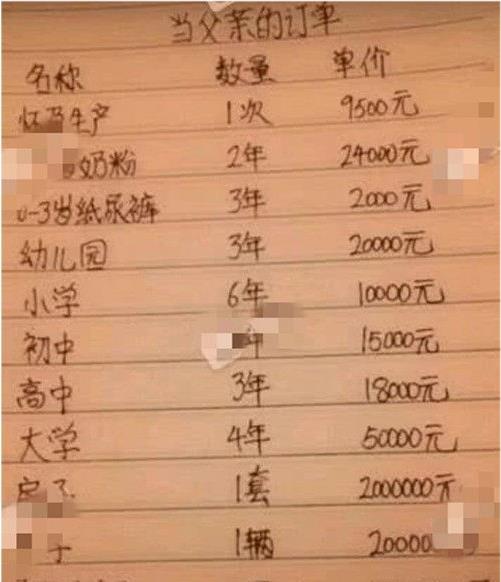 当父亲的订单
名称 数量 单价
怀孕生产 1次 9500元
奶粉 2年 24000元
0-3岁纸尿裤 3年 2000元
幼儿园 3年 20000元
小学 6年 10000元
初中 年 15000元
高中 3年 18000元
大学 4年 50000元
房子 1套 2000000元
子 1辆 20000